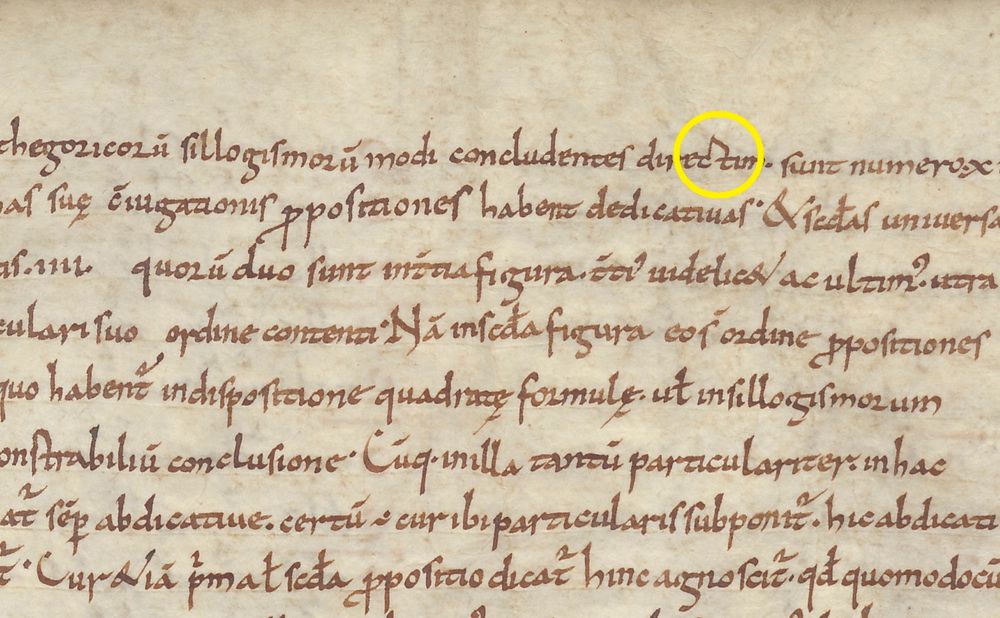 chegoricorū sillogismorū modi concludentes directim. sunt numero. x
as suę c̄iugationis ꝓpositiones habent dedicativas. & scd̄as universa
is. iiii. quorū duo sunt in tia figura. videlic& ac ultim᾽. utra
culari suo ordine contenti. Nā in scd̄a figura eos ordine ꝓpositiones
quo habent᾽ in dispositione quadratę formulę. ul̄ in sillogismorum
onstrabiliū conclusione. Cūq. in illa tantū particulariter. in hac
at᾽ sēp abdicative. certū ÷ cur ibi particularis subponit᾽. hic abdicati
t᾽. Cur &iā p̄ma l̄ scd̄a ꝓpositio dicat᾽ hinc agnoscit᾽. qd̄ quomodo cū